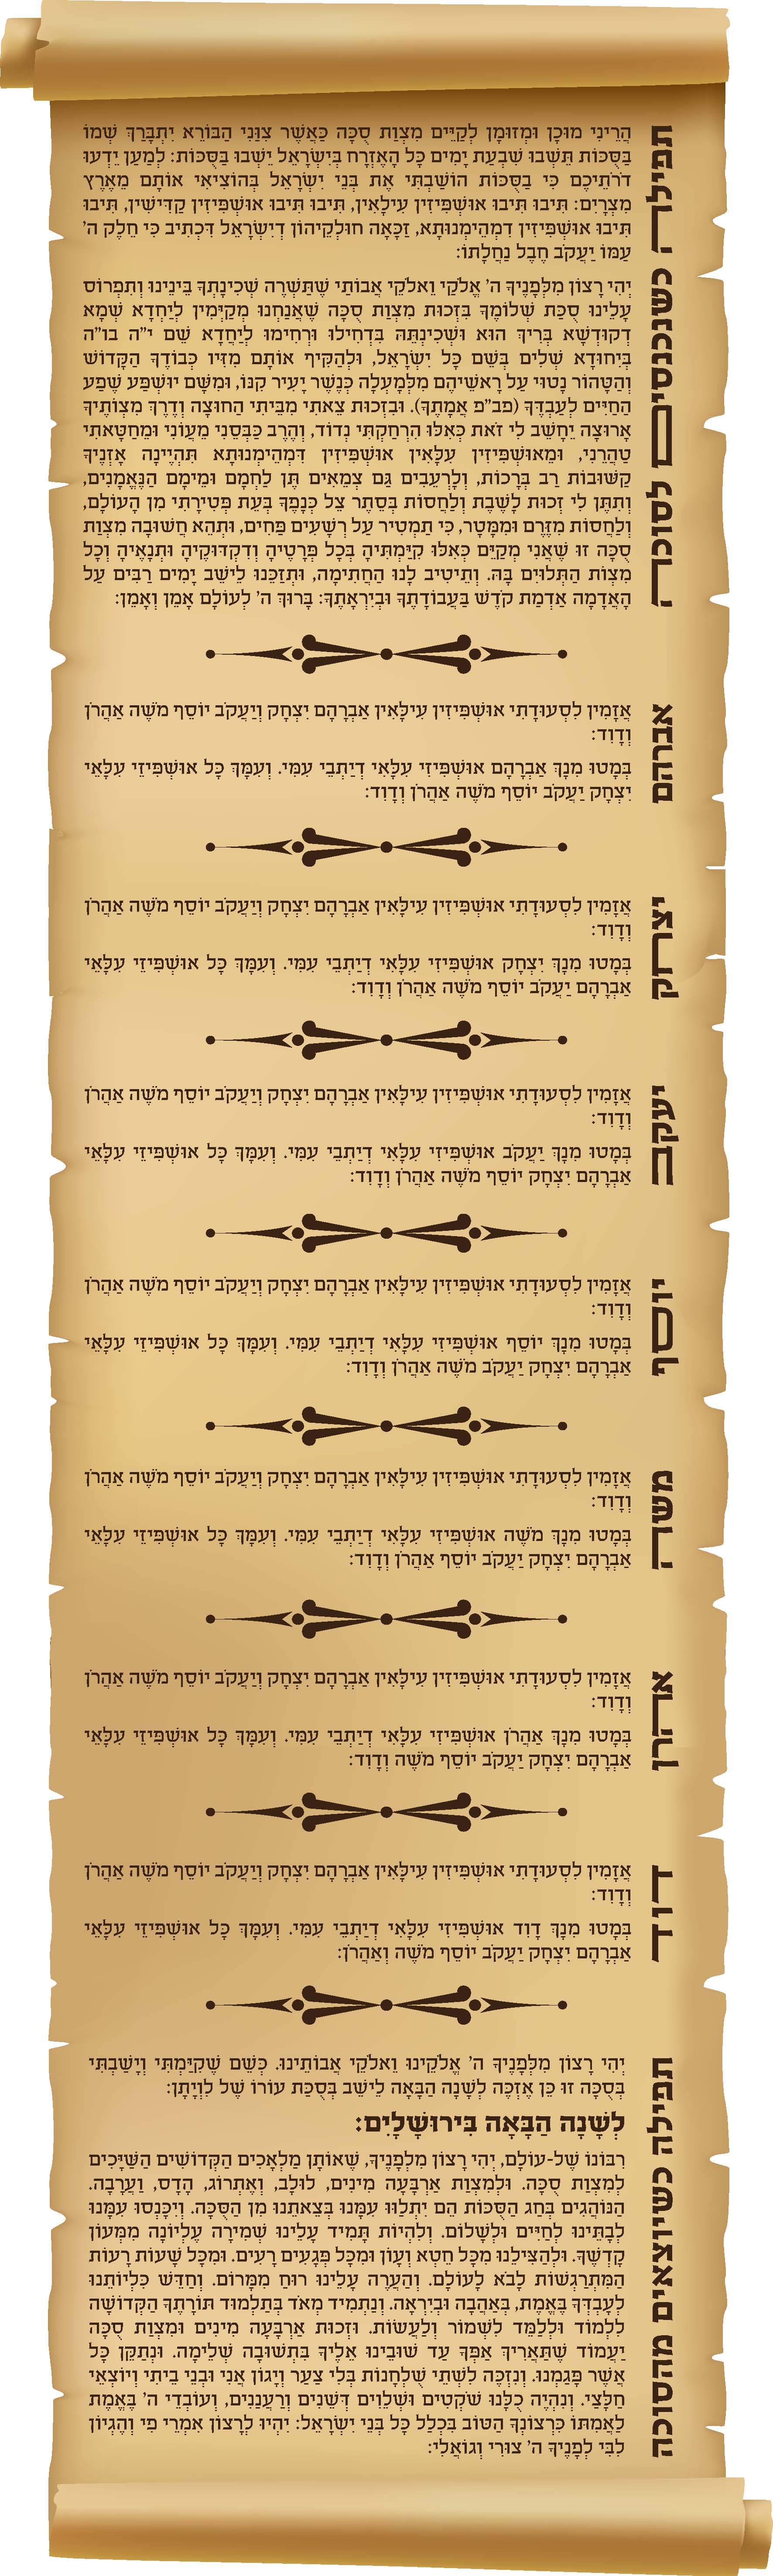 תפילה כשנכנסים לסוכה
הֲרֵינִי מוּכָן וּמְזוּמָן לְקַיֵּים מִצְוַת סֻכָּה כַּאֲשֶׁר צִוַּנִי הַבּוֹרֵא יִתְבָּרַךְ שְׁמוֹ
בַּסֻּכּוֹת תֵּשְׁבוּ שִׁבְעַת יָמִים כָּל הָאֶזְרָח בְּיִשְׂרָאֵל יֵשְׁבוּ בַּסֻּכּוֹת: לְמַעַן יֵדְעוּ
דֹרֹתֵיכֶם כִּי בַסֻּכּוֹת הוֹשַׁבְתִּי אֶת בְּנֵי יִשְׂרָאֵל בְּהוֹצִיאִי אוֹתָם מֵאֶרֶץ
מִצְרָיִם: תִּיבוּ תִּיבוּ אוּשְׁפִּיזִין עִילָאִין, תִּיבוּ תִּיבוּ אוּשְׁפִּיזִין קַדִּישִׁין, תִּיבוּ
תִּיבוּ אוּשְׁפִּיזִין דִמְהֵימְנוּתָא, זַכָּאָה חוּלְקֵיהוֹן דְיִשְׂרָאֵל דִּכְתִיב כִּי חֵלֶק ה'
עַמּוֹ יַעֲקֹב חֶבֶל נַחֲלָתוֹ:
יְהִי רָצוֹן מִלְּפָנֶיךָ ה' אֱלֹקַי וֵאלֹקֵי אֲבוֹתַי שֶׁתַּשְׁרֶה שְׁכִינָתְךָ בֵּינֵינוּ וְתִפְרוֹס
עָלֵינוּ סֻכַּת שְׁלוֹמֶךָ בִּזְכוּת מִצְוַת סֻכָּה שֶׁאֲנַחְנוּ מְקַיְּמִין לְיַחֲדָא שְׁמָא
דְקוּדְשָׁא בְּרִיךְ הוּא וּשְׁכִינְתֵּהּ בִּדְחִילוּ וּרְחִימוּ לְיַחֲדָא שֵׁם י"ה בו"ה
בְּיִחוּדָא שְׁלִים בְּשֵׁם כָּל יִשְׂרָאֵל, וּלְהַקִּיף אוֹתָם מִזִּיו כְּבוֹדְךָ הַקָּדוֹשׁ
וְהַטָּהוֹר נָטוּי עַל רָאשֵׁיהֶם מִלְמַעְלָה כְּנֶשֶׁר יָעִיר קִנּוֹ, וּמִשָּׁם יוּשְׁפַּע שֶׁפַע
הַחַיִּים לְעַבְדֶּךָ (פב"פ אֲמָתֶךָ). וּבִזְכוּת צֵאתִי מִבֵּיתִי הַחוּצָה וְדֶרֶךְ מִצְוֹתֶיךָ
אָרוּצָה יֵחָשֵׁב לִי זֹאת כְּאִלּוּ הִרְחַקְתִּי נְדוֹד, וְהֶרֶב כַּבְּסֵנִי מֵעֲוֹנִי וּמֵחַטָּאתִי
טַהֲרֵנִי, וּמֵאוּשְׁפִּיזִין עִלָּאִין אוּשְׁפִּיזִין דִּמְהֵימְנוּתָא תִּהְיֶינָה אָזְנֶיךָ
קַשּׁוּבוֹת רַב בְּרָכוֹת, וְלָרְעֵבִים גַּם צְמֵאִים תֵּן לַחְמָם וּמֵימָם הַנֶּאֱמָנִים,
וְתִתֶּן לִי זְכוּת לָשֶׁבֶת וְלַחֲסוֹת בְּסֵתֶר צֵל כְּנָפֶךָ בְּעֵת פְּטִירָתִי מִן הָעוֹלָם,
וְלַחֲסוֹת מִזֶּרֶם וּמִמָּטָר, כִּי תַמְטִיר עַל רְשָׁעִים פַּחִים, וּתְהֵא חֲשׁוּבָה מִצְוַת
סֻכָּה זוּ שֶׁאֲנִי מְקַיֵּם כְּאִלּוּ קִיַּמְתִּיהָ בְּכָל פְּרָטֶיהָ וְדִקְדּוּקֶיהָ וּתְנָאֶיהָ וְכָל
מִצְוֹת הַתְּלוּיִם בָּהּ. וְתֵיטִיב לָנוּ הַחֲתִימָה, וּתְזַכֵּנוּ לֵישֵׁב יָמִים רַבִּים עַל
הָאֲדָמָה אַדְמַת קֹדֶשׁ בַּעֲבוֹדָתֶךָ וּבְיִרְאָתֶךָ: בָּרוּךְ ה' לְעוֹלָם אָמֵן וְאָמֵן:
אברהם
אֲזַמִּין לִסְעוּדָתִי אוּשְׁפִּיזִין עִילָּאִין אַבְרָהָם יִצְחָק וְיַעֲקֹב יוֹסֵף מֹשֶׁה אַהֲרֹן
וְדָוִד:
בְּמָטוּ מִנָךְ אַבְרָהָם אוּשְׁפִּיזִי עִלָּאִי דְיַתְבֵי עִמִּי. וְעִמָּךְ כָּל אוּשְׁפִּיזֵי עִלָּאֵי
יִצְחָק יַעֲקֹב יוֹסֵף מֹשֶׁה אַהֲרֹן וְדָוִד:
יצחק
אֲזַמִּין לִסְעוּדָתִי אוּשְׁפִּיזִין עִילָּאִין אַבְרָהָם יִצְחָק וְיַעֲקֹב יוֹסֵף מֹשֶׁה אַהֲרֹן
וְדָוִד:
בְּמָטוּ מִנָךְ יִצְחָק אוּשְׁפִּיזִי עִלָּאִי דְיַתְבֵי עִמִּי. וְעִמָּךְ כָּל אוּשְׁפִּיזֵי עִלָּאֵי
אַבְרָהָם יַעֲקֹב יוֹסֵף מֹשֶׁה אַהֲרֹן וְדָוִד:
יעקב
אֲזַמִּין לִסְעוּדָתִי אוּשְׁפִּיזִין עִילָּאִין אַבְרָהָם יִצְחָק וְיַעֲקֹב יוֹסֵף מֹשֶׁה אַהֲרֹן
וְדָוִד:
בְּמָטוּ מִנָךְ יַעֲקֹב אוּשְׁפִּיזִי עִלָּאִי דְיַתְבֵי עִמִּי. וְעִמָּךְ כָּל אוּשְׁפִּיזֵי עִלָּאֵי
אַבְרָהָם יִצְחָק יוֹסֵף מֹשֶׁה אַהֲרֹן וְדָוִד:
יוסף
אֲזַמִּין לִסְעוּדָתִי אוּשְׁפִּיזִין עִילָּאִין אַבְרָהָם יִצְחָק וְיַעֲקֹב יוֹסֵף מֹשֶׁה אַהֲרֹן
וְדָוִד:
בְּמָטוּ מִנָךְ יוֹסֵף אוּשְׁפִּיזִי עִלָּאִי דְיַתְבֵי עִמִּי. וְעִמָּךְ כָּל אוּשְׁפִּיזֵי עִלָּאֵי
אַבְרָהָם יִצְחָק יַעֲקֹב מֹשֶׁה אַהֲרֹן וְדָוִד:
משה
אֲזַמִּין לִסְעוּדָתִי אוּשְׁפִּיזִין עִילָּאִין אַבְרָהָם יִצְחָק וְיַעֲקֹב יוֹסֵף מֹשֶׁה אַהֲרֹן
וְדָוִד:
בְּמָטוּ מִנָךְ מֹשֶׁה אוּשְׁפִּיזִי עִלָּאִי דְיַתְבֵי עִמִּי. וְעִמָּךְ כָּל אוּשְׁפִּיזֵי עִלָּאֵי
אַבְרָהָם יִצְחָק יַעֲקֹב יוֹסֵף אַהֲרֹן וְדָוִד:
אהרן
אֲזַמִּין לִסְעוּדָתִי אוּשְׁפִּיזִין עִילָּאִין אַבְרָהָם יִצְחָק וְיַעֲקֹב יוֹסֵף מֹשֶׁה אַהֲרֹן
וְדָוִד:
בְּמָטוּ מִנָךְ אַהֲרֹן אוּשְׁפִּיזִי עִלָּאִי דְיַתְבֵי עִמִּי. וְעִמָּךְ כָּל אוּשְׁפִּיזֵי עִלָּאֵי
אַבְרָהָם יִצְחָק יַעֲקֹב יוֹסֵף מֹשֶׁה וְדָוִד:
דוד
אֲזַמִּין לִסְעוּדָתִי אוּשְׁפִּיזִין עִילָּאִין אַבְרָהָם יִצְחָק וְיַעֲקֹב יוֹסֵף מֹשֶׁה אַהֲרֹן
וְדָוִד:
בְּמָטוּ מִנָךְ דָוִד אוּשְׁפִּיזִי עִלָּאִי דְיַתְבֵי עִמִּי. וְעִמָּךְ כָּל אוּשְׁפִּיזֵי עִלָּאֵי
אַבְרָהָם יִצְחָק יַעֲקֹב יוֹסֵף מֹשֶׁה וְאַהֲרֹן:
תפילה כשיוצאים מהסוכה
יְהִי רָצוֹן מִלְּפָנֶיךָ ה' אֱלֹקֵינוּ וֵאלֹקֵי אֲבוֹתֵינוּ. כְּשֵׁם שֶׁקִּיַּמְתִּי וְיָשַׁבְתִּי
בְּסֻכָּה זוּ כֵּן אֶזְכֶּה לְשָׁנָה הַבָּאָה לֵישֵׁב בְּסֻכַּת עוֹרוֹ שֶׁל לִוְיָתָן:
לְשָׁנָה הַבָּאָה בִּירוּשָׁלָיִם:
רִבּוֹנוֹ שֶׁל-עוֹלָם, יְהִי רָצוֹן מִלְּפָנֶיךָ, שֶׁאוֹתָן מַלְאָכִים הַקְּדוֹשִׁים הַשַּׁיָּכִים
לְמִצְוַת סֻכָּה. וּלְמִצְוַת אַרְבָּעָה מִינִים, לוּלָב, וְאֶתְרוֹג, הֲדַס, וַעֲרָבָה.
הַנּוֹהֲגִים בְּחַג הַסֻּכּוֹת הֵם יִתְלַוּוּ עִמָּנוּ בְּצֵאתֵנוּ מִן הַסֻּכָּה. וְיִכָּנְסוּ עִמָּנוּ
לְבָתֵּינוּ לְחַיִּים וּלְשָׁלוֹם. וְלִהְיוֹת תָּמִיד עָלֵינוּ שְׁמִירָה עֶלְיוֹנָה מִמְּעוֹן
קָדְשֶׁךָ. וּלְהַצִּילֵנוּ מִכָּל חֵטְא וְעָוֹן וּמִכָּל פְּגָעִים רָעִים. וּמִכָּל שָׁעוֹת רָעוֹת
הַמִּתְרַגְּשׁוֹת לָבֹא לָעוֹלָם. וְהַעֲרֵה עָלֵינוּ רוּחַ מִמָּרוֹם. וְחַדֵּשׁ כִּלְיוֹתֵנוּ
לְעָבְדְּךָ בֶּאֱמֶת, בְּאַהֲבָה וּבְיִרְאָה. וְנַתְמִיד מְאֹד בְּתַלְמוּד תּוֹרָתֶךָ הַקְּדוֹשָׁה
לִלְמוֹד וּלְלַמֵּד לִשְׁמוֹר וְלַעֲשׂוֹת. וּזְכוּת אַרְבָּעָה מִינִים וּמִצְוַת סֻכָּה
יַעֲמוֹד שֶׁתַּאֲרִיךְ אַפְּךָ עַד שׁוּבֵינוּ אֵלֶיךָ בִּתְשׁוּבָה שְׁלֵימָה. וּנְתַקֵּן כָּל
אֲשֶׁר פָּגַמְנוּ. וְנִזְכֶּה לִשְׁתֵּי שֻׁלְחָנוֹת בְּלִי צַעַר וְיָגוֹן אֲנִי וּבְנֵי בֵיתִי וְיוֹצְאֵי
חֲלָצַי. וְנִהְיֶה כֻלָּנוּ שֹׁקְטִים וּשְׁלֵוִים דְּשֵׁנִים וְרַעֲנַנִּים, וְעוֹבְדֵי ה' בֶּאֱמֶת
לַאֲמִתּוֹ כִּרְצוֹנְךָ הַטּוֹב בִּכְלַל כָּל בְּנֵי יִשְׂרָאֵל: יִהְיוּ לְרָצוֹן אִמְרֵי פִי וְהֶגְיוֹן
לִבִּי לְפָנֶיךָ ה' צוּרִי וְגוֹאֲלִי: